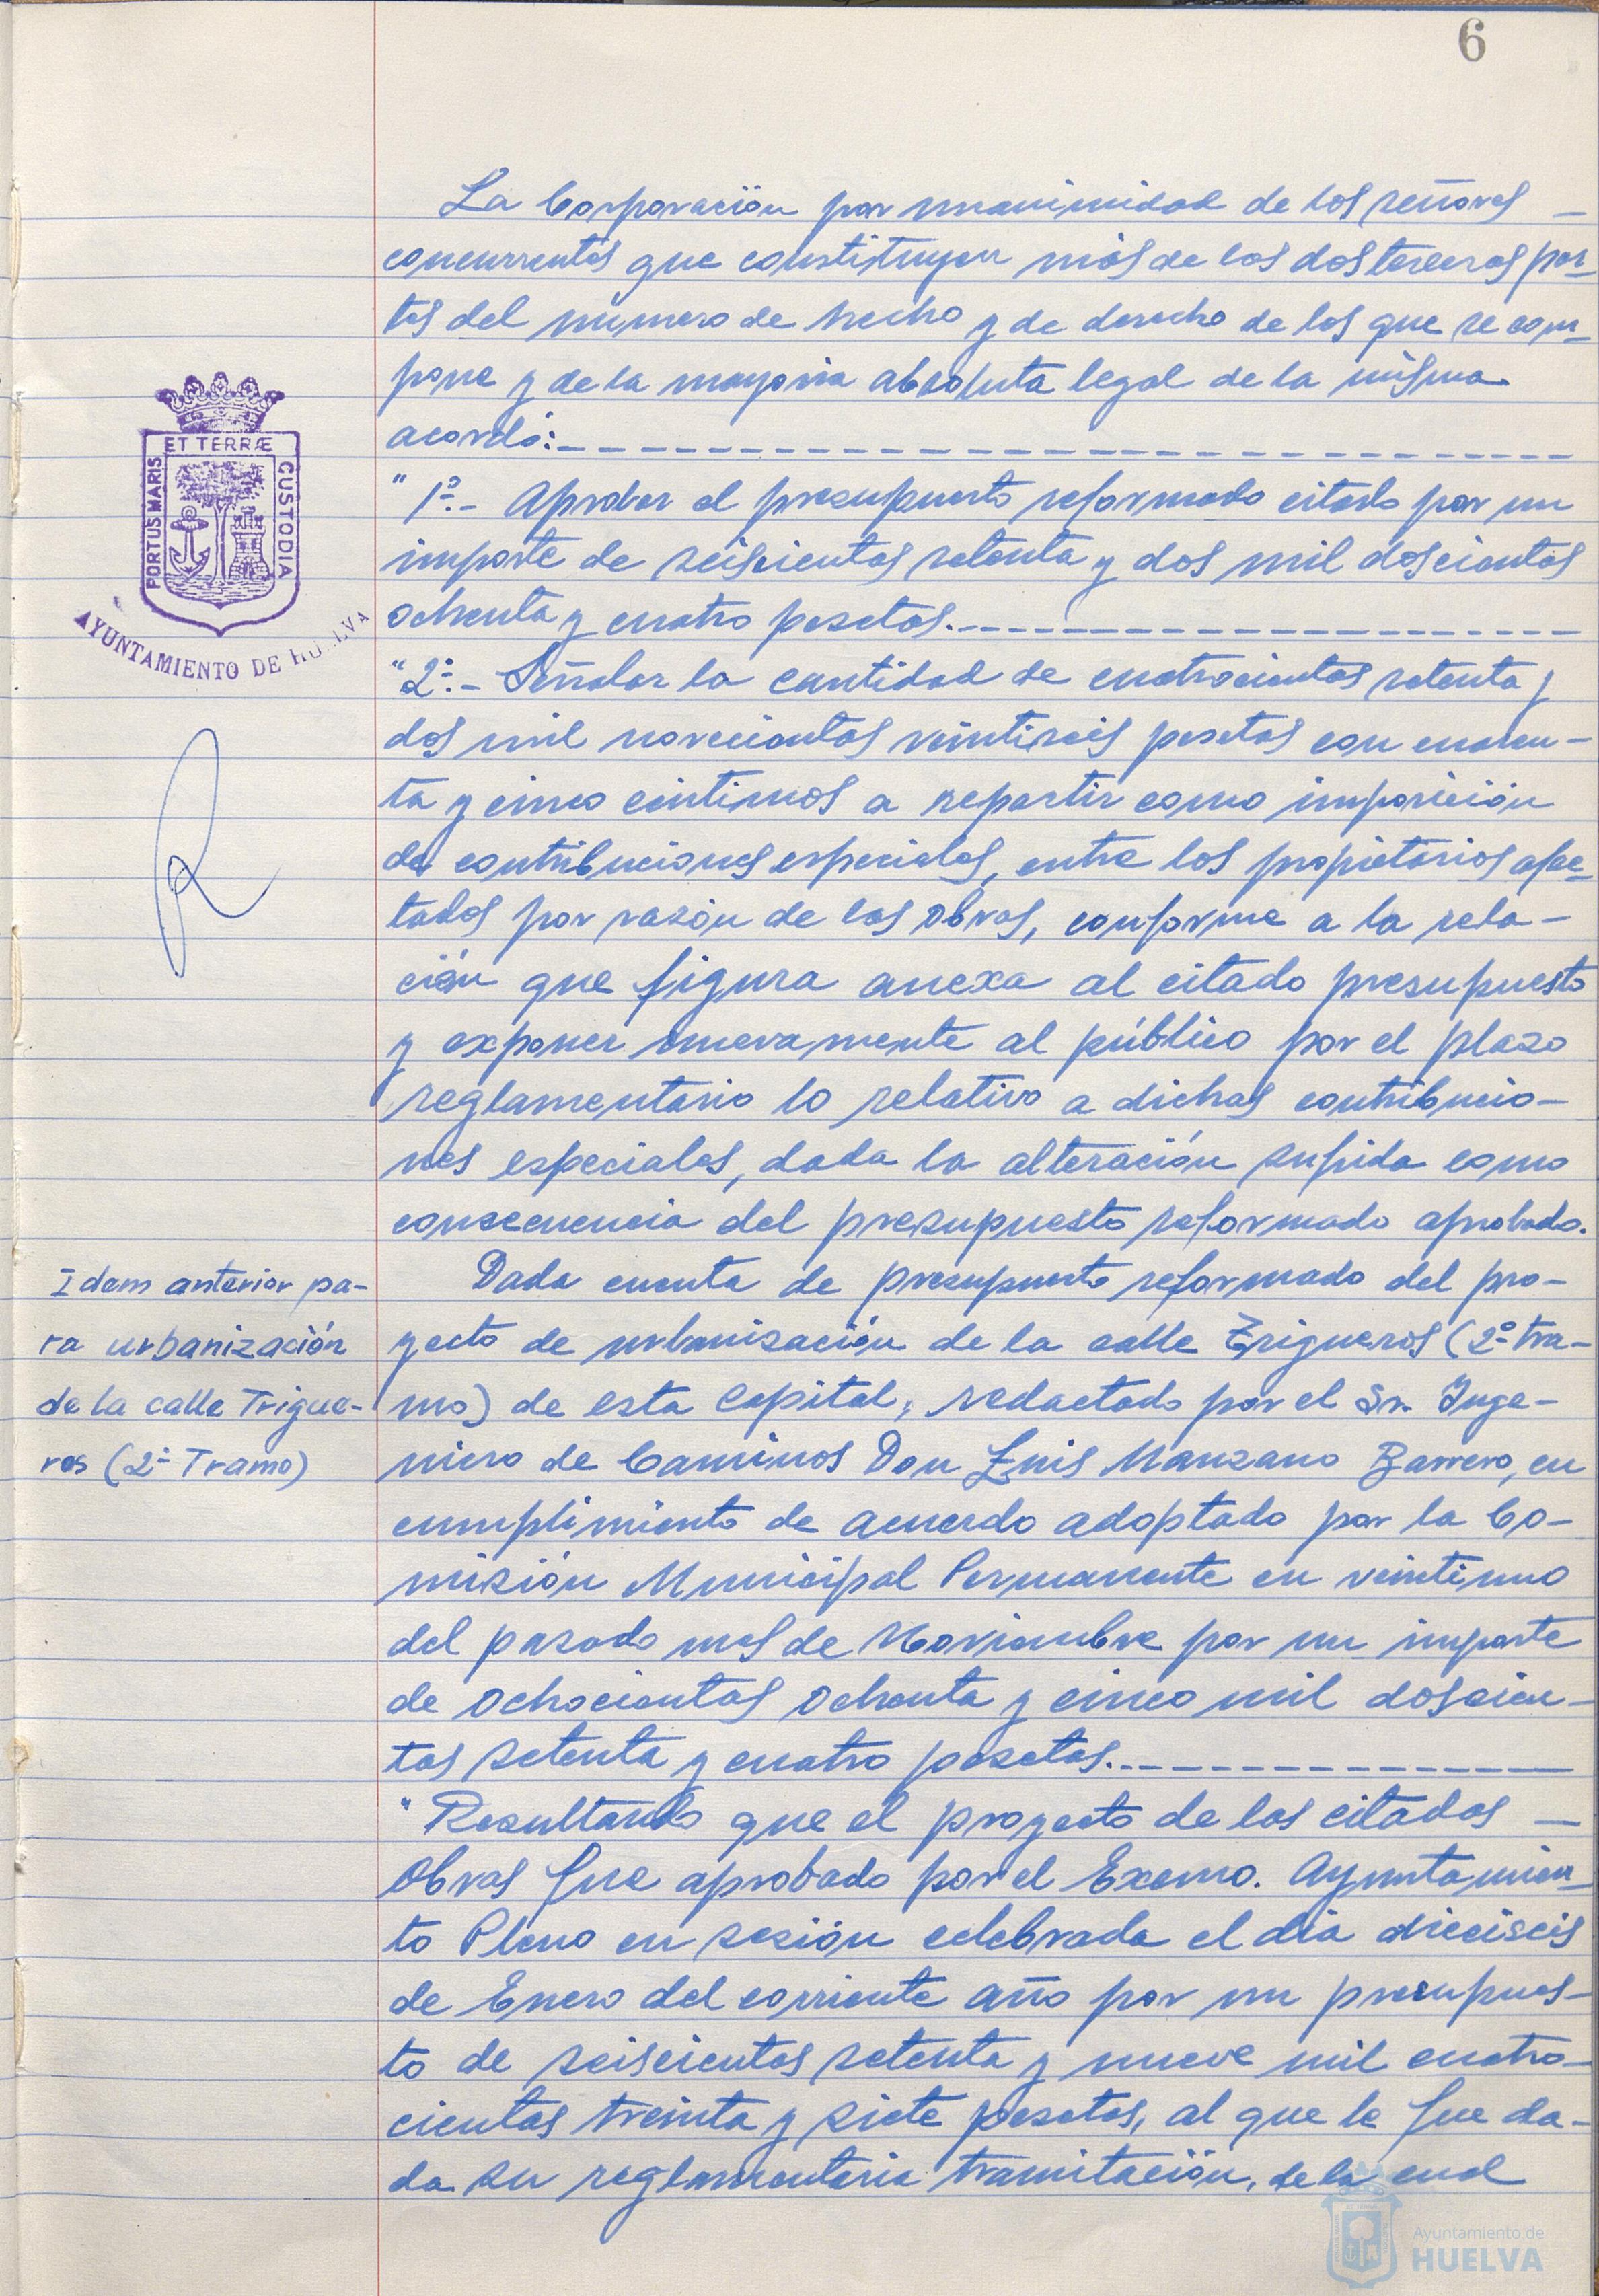 6
La Corporación por unanimidad de los señores —
concurrentes que constituyen más de las dos terceras par-
tes del número de hecho y de derecho de los que se com-
pone y de la mayoria absoluta legal de la misma
acordó:
ET TERRÆ
PORTUS MARIS
CUSTODIA
AYUNTAMIENTO DE HUELVA
" 1º.- Aprobar el presupuesto reformado citado por un
importe de seiscientas setenta y dos mil doscientas
ochenta y cuatro pesetas.
"2º.- Señalar la cantidad de cuatrocientas setenta y
dos mil novecientas veintiseis pesetas con cuaren-
ta y cinco céntimos a repartir como imposición
de contribuciones especiales, entre los propietarios afec-
tados por razón de las obras, conforme a la rela-
ción que figura anexa al citado presupuesto
y exponer nuevamente al público por el plazo
reglamentario lo relativo a dichas contribucio-
nes especiales, dada la alteración sufrida como
consecuencia del presupuesto reformado aprobado.
Idem anterior pa-
ra urbanización
de la calle Trigue-
ros (2º Tramo)
Dada cuenta de presupuesto reformado del pro-
yecto de urbanización de la calle Trigueros (2º tra-
mo) de esta Capital, redactado por el Sr. Inge-
niero de Caminos Don Luis Manzano Barrero, en
cumplimiento de acuerdo adoptado por la Co-
misión Municipal Permanente en veintiuno
del pasado mes de Noviembre por un importe
de ochocientas ochenta y cinco mil doscien-
tas setenta y cuatro pesetas.
" Resultando que el proyecto de las citadas —
obras fue aprobado por el Excmo. Ayuntamien-
to Pleno en sesión celebrada el dia dieciseis
de Enero del corriente año por un presupues-
to de seiscientas setenta y nueve mil cuatro-
cientas treinta y siete pesetas, al que le fue da-
da su reglamentaria tramitación, de la cual
Ayuntamiento de
HUELVA